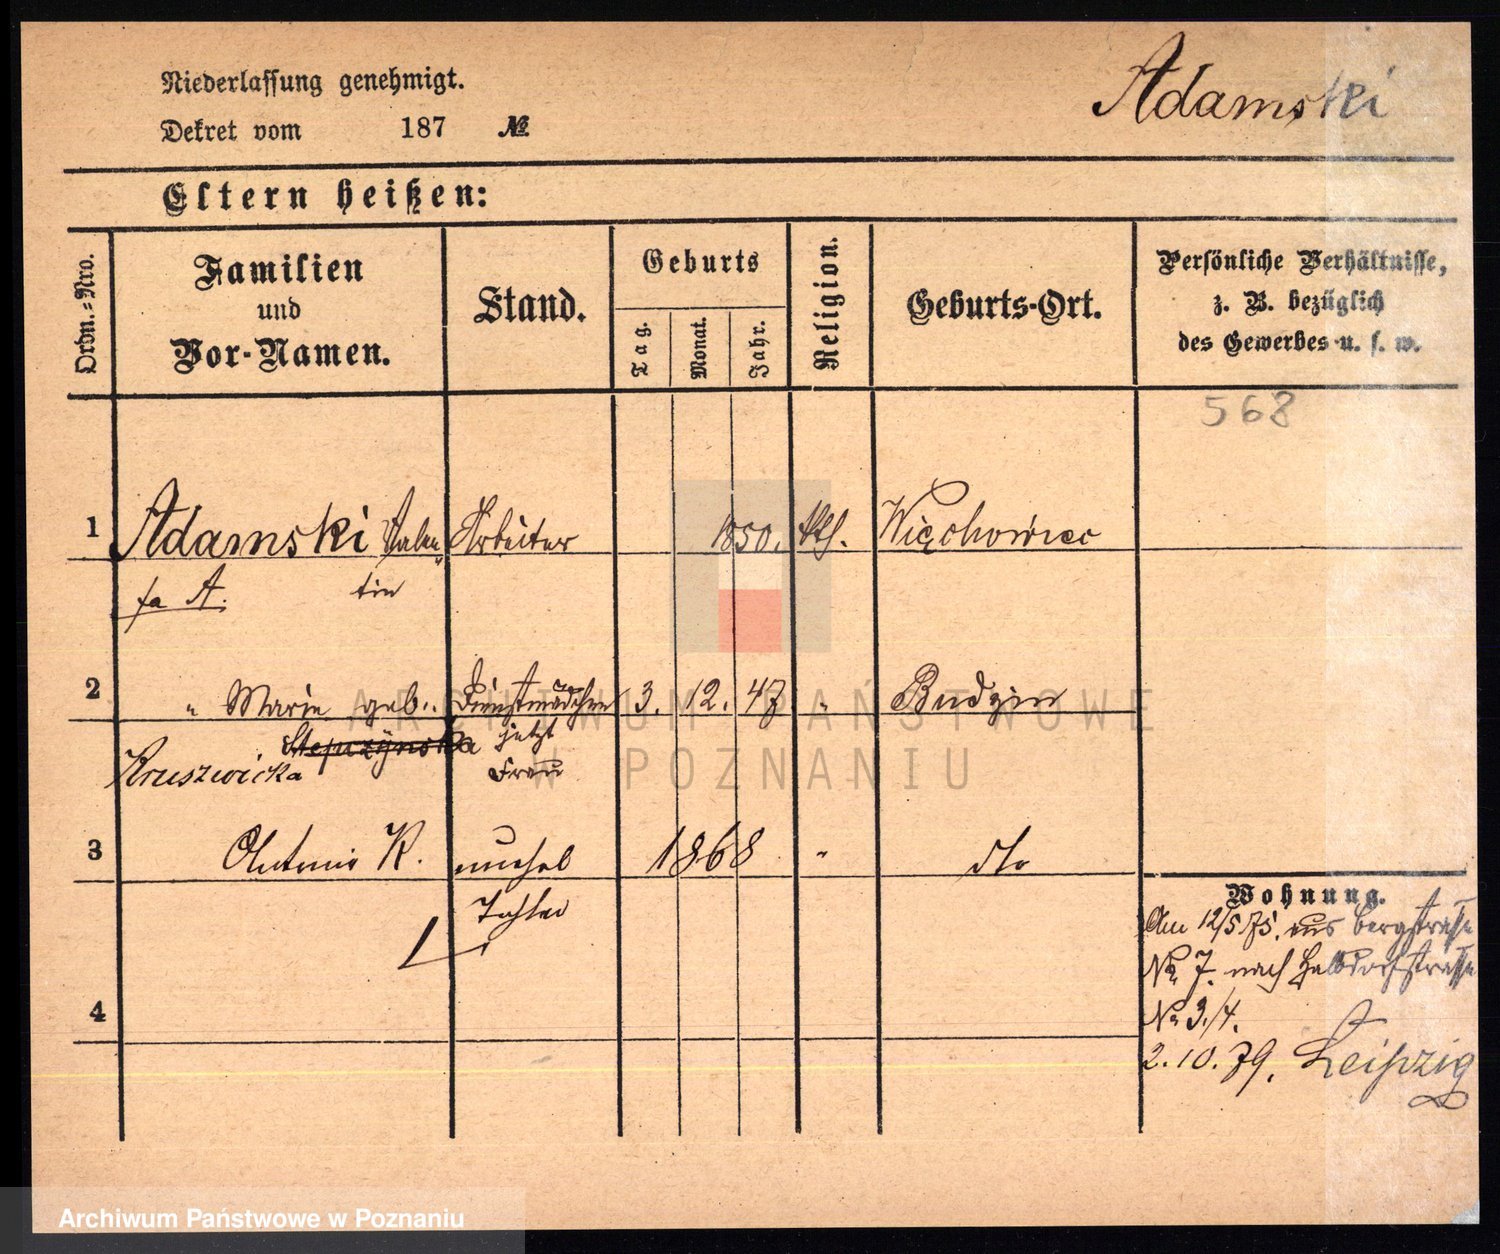 Niederlassung genehmigt.
Adamski
Dekret vom 187 №
Eltern heißen:
Ordn.=Nro.
Familien
und
Vor-Namen.
Stand.
Geburts
Tag.
Monat.
Jahr.
Religion.
Geburts-Ort.
Persönliche Verhältnisse,
z. B. bezüglich
des Gewerbes u. s. w.
568
1 Adamski Valen Arbeiter 1850. kth. Więchowiec
fa A. tin
2 " Marie geb. Dienstmädchen 3. 12. 47 " Budzin
Stepczynska jetzt
Kruszwicka Frau
3 Antonie K. unehel 1868 " dto
Tochter
Wohnung.
Am 12/5 75. aus Bergstrasse
No 7. nach Halbdorfstrasse
4
No 3./4.
2.10.79. Leipzig
ARCHIWUM PAŃSTWOWE
W POZNANIU
Archiwum Państwowe w Poznaniu